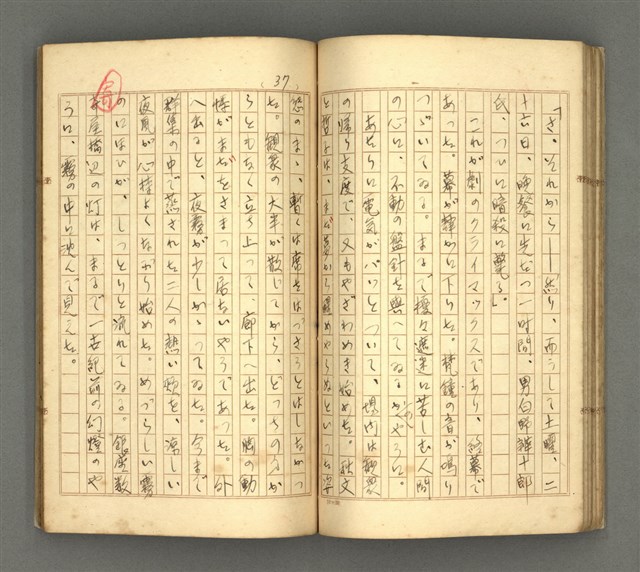 「さ、それから――然り、而うして土曜、二
十六日、晩餐に先だつ一時間、男白井緋十郎
氏、つひに暗殺に斃る」
これが劇のクライマックスであり、終幕で
あつた。幕が静かに下りた。梵鐘の音が鳴り
つゞいてゐる。まるで擾々迷送に苦しむ人間
の心に、不動の盤針を與へてゐるかのやうに。
あたりに電気がパッとついて、場内は観客
の帰り支度で、又もやざわめき始めた。秋文
と哲子は、まだ夢から醒めやらぬといつた字
37
恣のまゝ、暫くは席をはづさうとはしなかつ
た。観客の大半が散じてから、どつちの方か
らともなく立ち上つて、廊下へ出た。胸の動
悸がまだをさまつて居ないやうであつた。外
へ出ると、夜霧が少しかゝつてゐた。今まで
群集の中で蒸された二人の熱い頬を、涼しい
夜風が心持よくなぶり始めた。めづらしい霧
のにほひが、しつとりと流れてゐる。銀座数
寄屋橋辺の灯は、まるで一世紀前の幻燈のや
うに、霧の中に沈んで見えた。